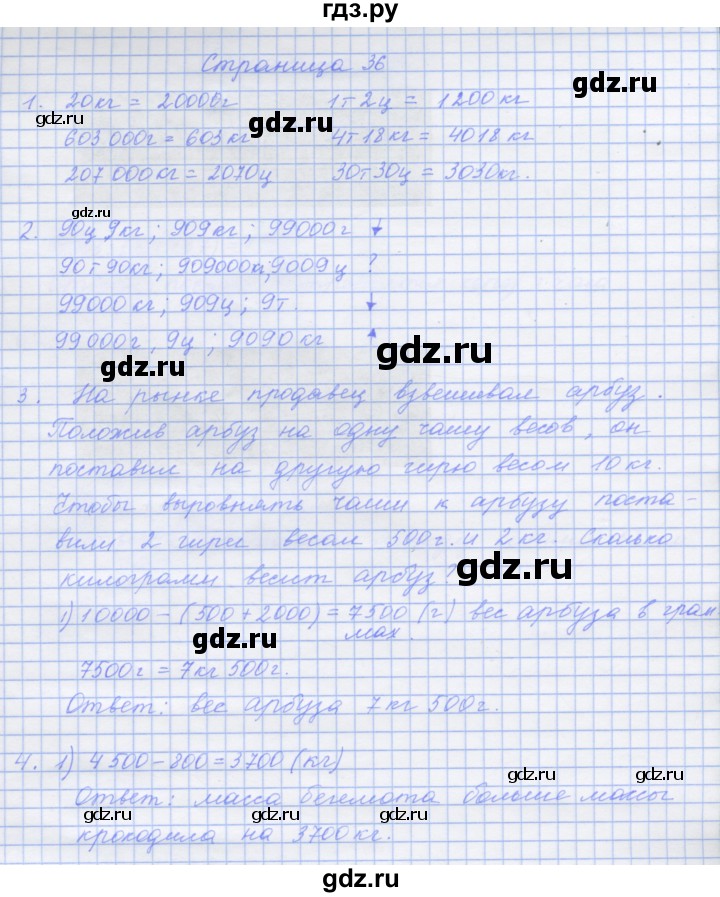 гдз.ру
Страница 36
1. 20кг = 20000г 1т2ц = 1200кг
603 000г = 603кг 4т18кг = 4018кг
207 000кг = 2070ц 30т30ц = 3030кг.
2. 90ц 9кг; 909кг; 99000г ↓
90т90кг; 909000кг; 9009ц ?
99000кг; 909ц; 9т. ↓
99000г, 9ц; 9090кг ↑
3. На рынке продавец взвешивал арбуз.
Положив арбуз на одну чашу весов, он
поставил на другую гирю весом 10кг.
Чтобы выровнять чаши к арбузу поста-
вили 2 гири весом 500г. и 2кг. Сколько
килограмм весит арбуз?
1) 10000 - (500 + 2000) = 7500 (г) вес арбуза в грам
мах.
7500г = 7кг 500г.
Ответ: вес арбуза 7кг 500г.
4. 1) 4500 - 800 = 3700 (кг)
Ответ: масса бегемота больше массы
крокодила на 3700кг.
gdz.ru
gdz.ru
gdz.ru
gdz.ru
gdz.ru
gdz.ru
gdz.ru
gdz.ru
gdz.ru
gdz.ru
gdz.ru
gdz.ru